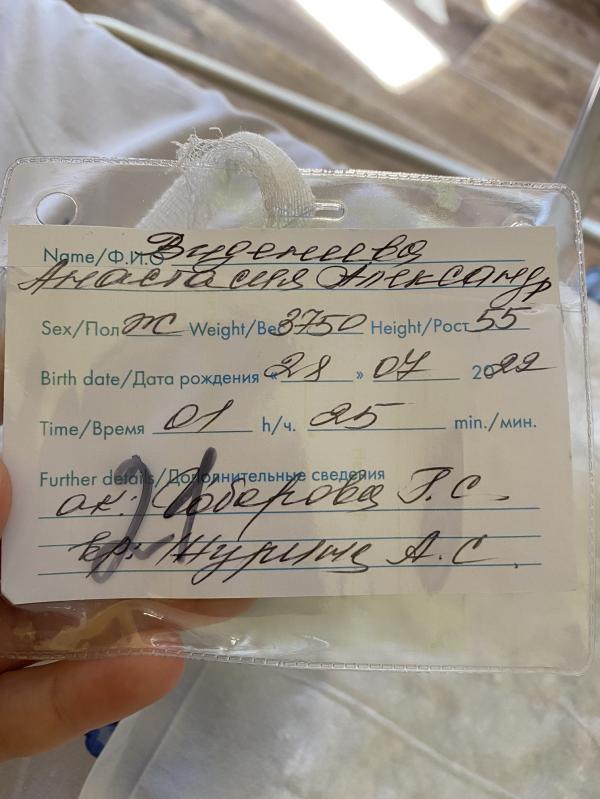 Name/Ф.И.О Виденеева
Анастасия Александр
Sex/Пол Ж Weight/Вес 3750 Height/Рост 55
Birth date/Дата рождения «28» 07 2022
Time/Время 01 h/ч. 25 min./мин.
Further details/Дополнительные сведения
21
ак: Г.С.
вр: А.С.